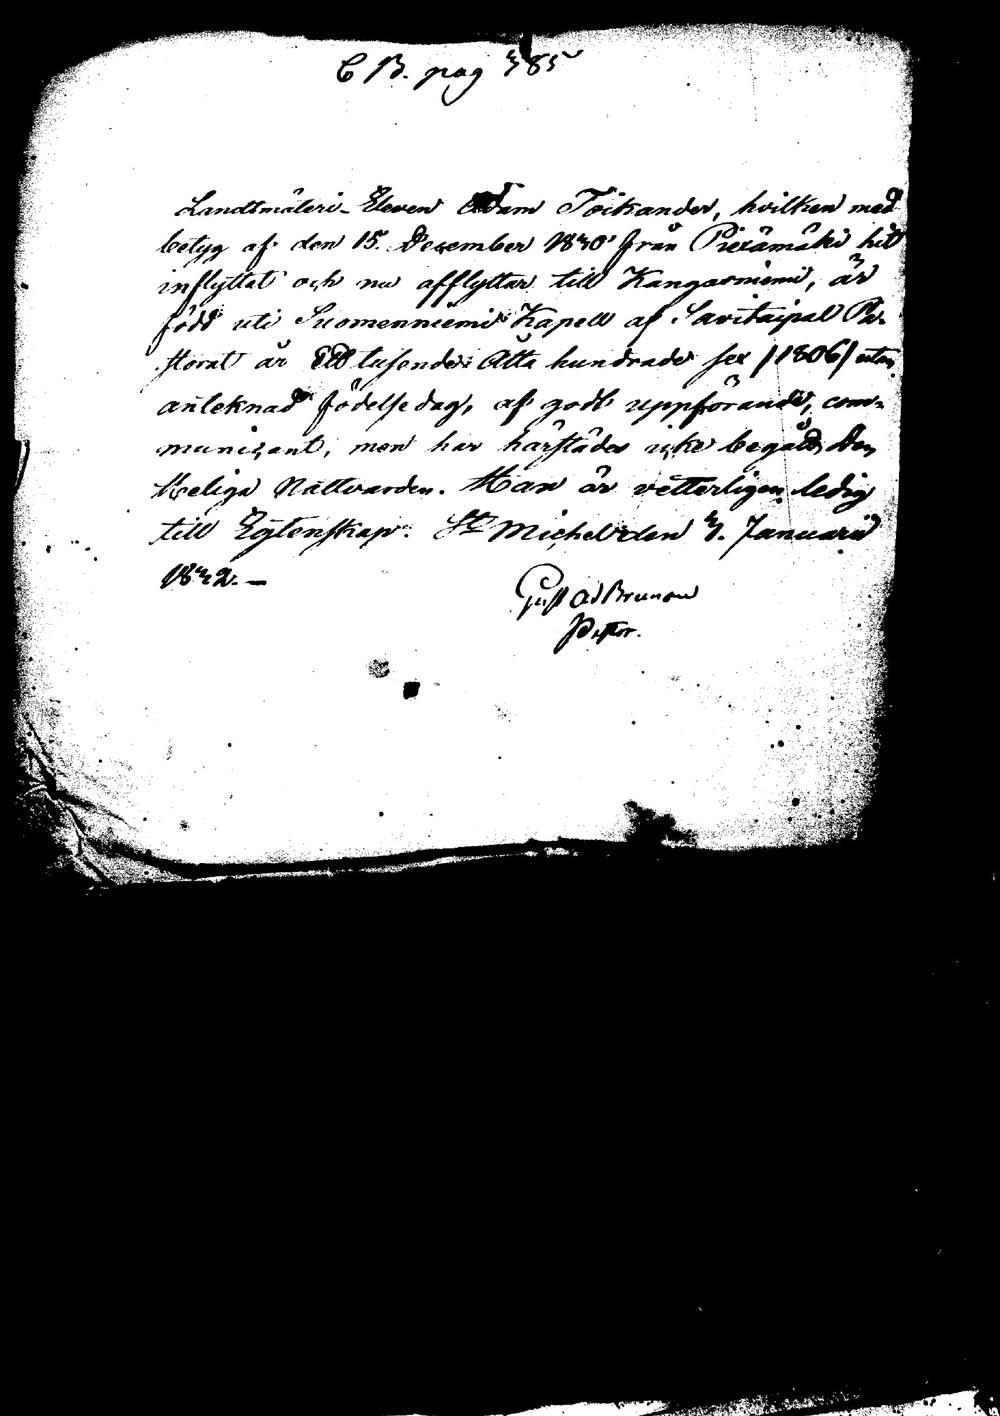 C B. pag 385
Landtmäteri-Eleven Adam Toikander, hvilken med
betyg af den 15. December 1830 från Piexämäki hit
inflyttat och nu afflyttar till Kangasniemi, är
född uti Suomenniemi Kapell af Savitaipal Pa-
storat år Ett tusende Åtta hundrade sex /1806/ utan
anteknad födelse dag, af godt uppförande, com-
municant, men har härstädes icke begått den
Heliga Nattvarden. Han är vetterligen ledig
till Egtenskap. St Michel den 3. Januarii
1832.—
Gust Ad Brunou
Pastor.